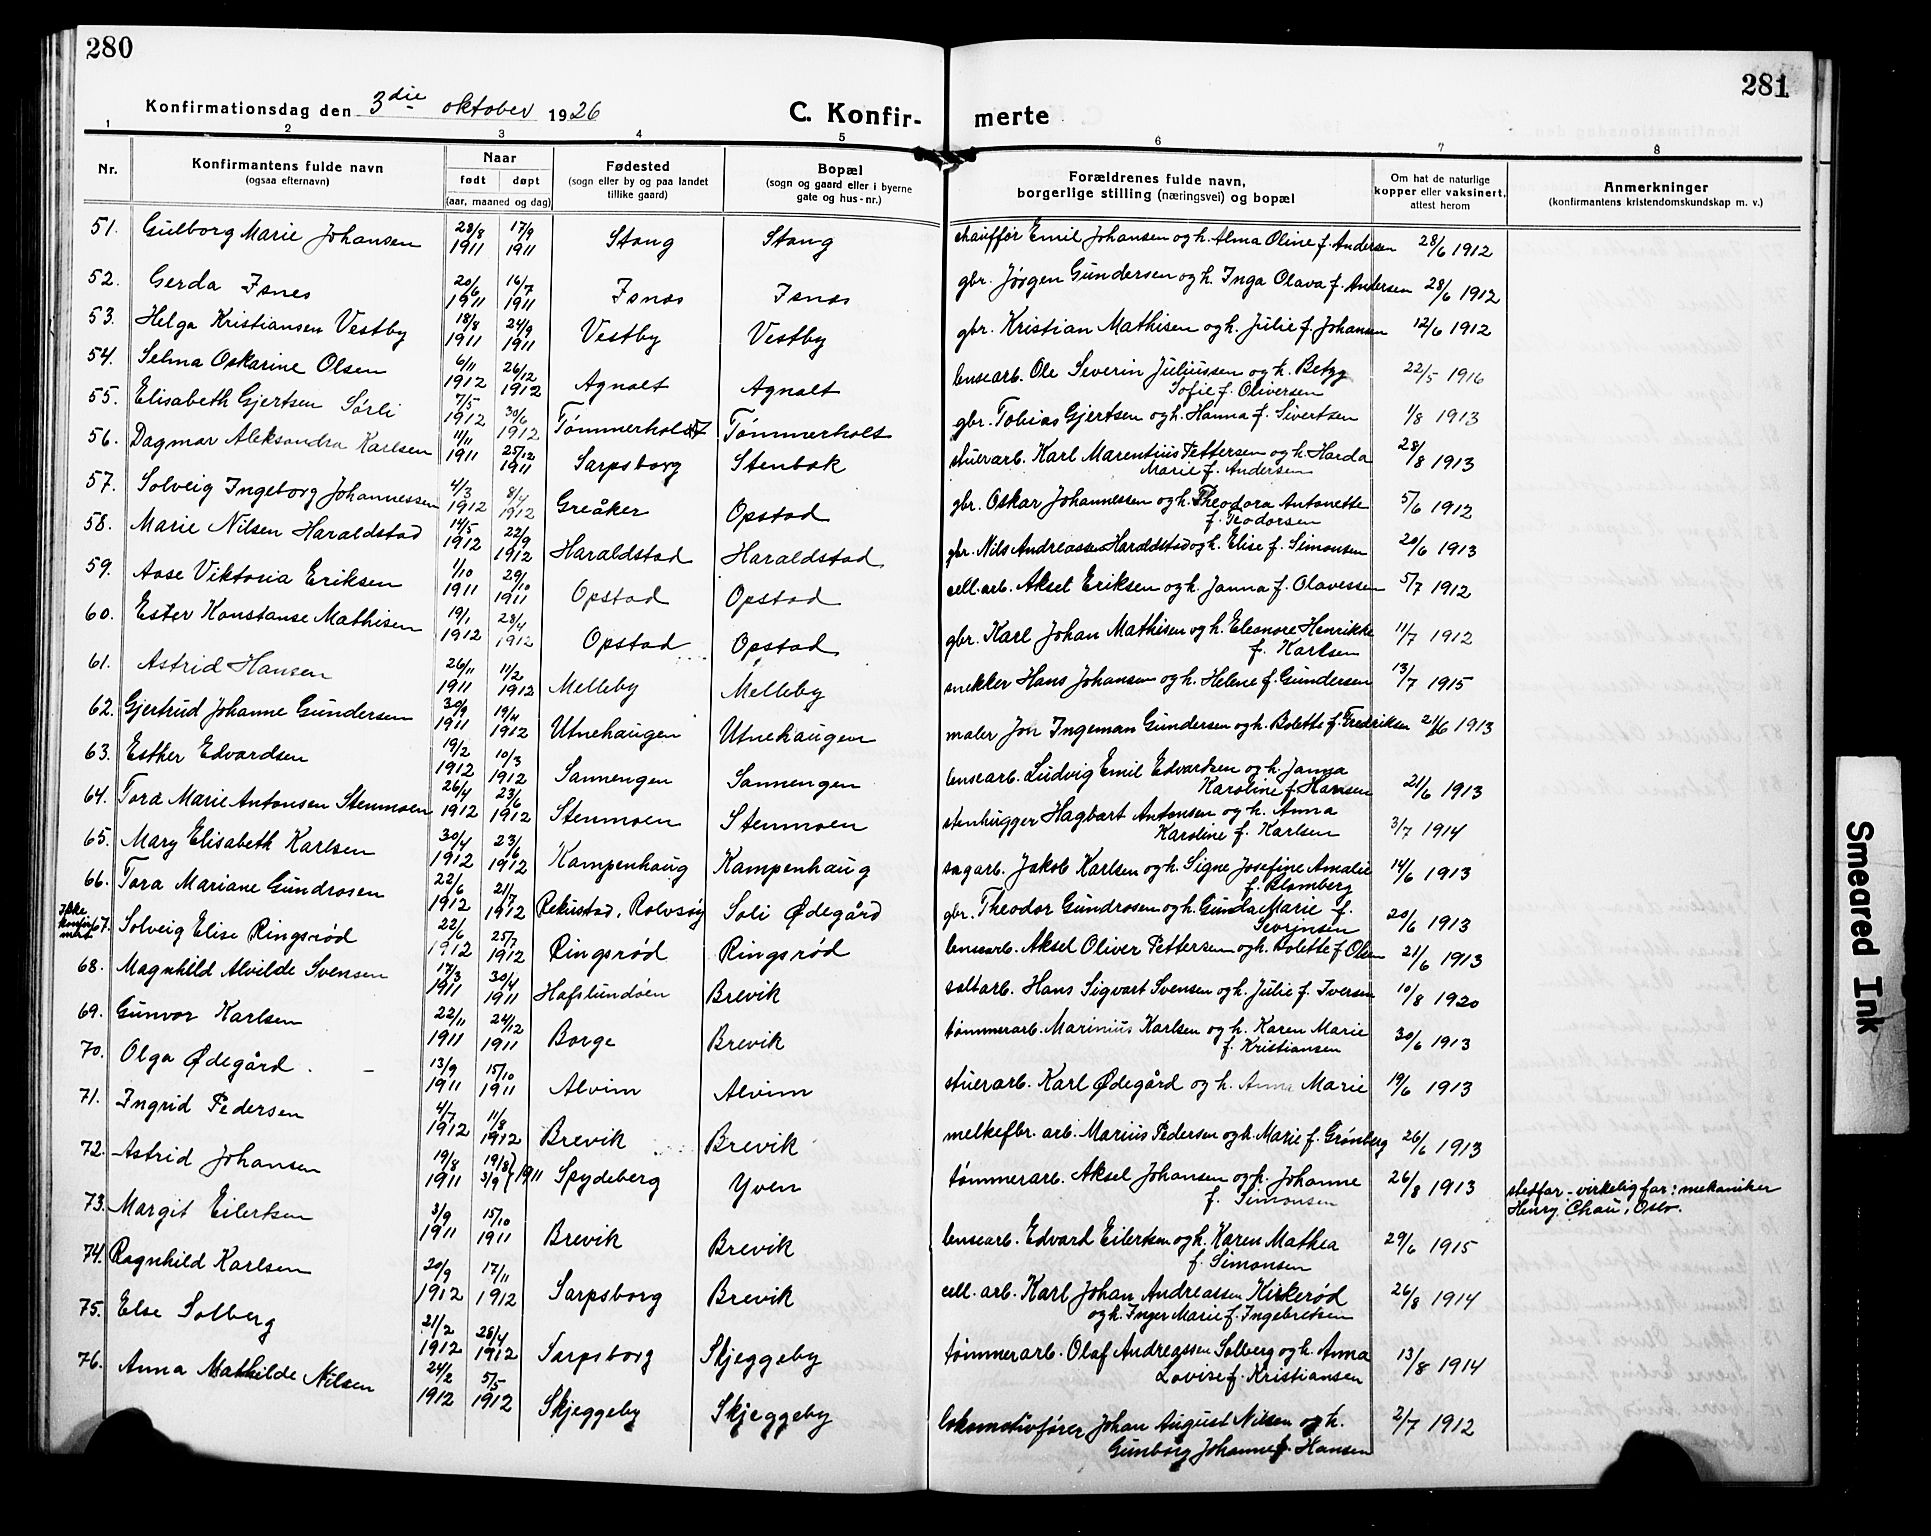 280
281
Konfirmationsdag den 3die oktober 1926
C. Konfir- merte
1 2 3 4 5 6 7 8
Nr. Konfirmantens fulde navn (ogsaa efternavn) Naar født døpt (aar, maaned og dag) Fødested (sogn eller by og paa landet tillike gaard) Bopæl (sogn og gaard eller i byerne gate og hus-nr.) Forældrenes fulde navn, borgerlige stilling (næringsvei) og bopæl Om hat de naturlige kopper eller vaksinert, attest herom Anmerkninger (konfirmantens kristendomskundskap m. v.)
51. Gulborg Marie Johansen 28/8 1911 17/9 1911 Stang Stang chauffør Emil Johansen og h. Alma Oline f. Andersen 28/6 1912
52. Gerda Isnes 20/6 1911 16/7 1911 Isnes Isnes gbr. Jørgen Gundersen og h. Inga Olava f. Andersen 28/6 1912
53. Helga Kristiansen Vestby 18/8 1911 24/9 1911 Vestby Vestby gbr. Kristian Mathisen og h. Julie f. Johansen 12/6 1912
54. Selma Oskarine Olsen 6/11 1912 26/12 1912 Agnalt Agnalt lensearb. Ole Severin Juliussen og h. Betzy
Sofie f. Oliversen 22/5 1916
55. Elisabeth Gjertsen Sørli 7/5 1912 30/6 1912 Tømmerholt Tømmerholt gbr. Tobias Gjertsen og h. Hanna f. Sivertsen 1/8 1913
56. Dagmar Aleksandra Karlsen 11/11 1911 25/12 1911 Sarpsborg Stenbæk stuerarb. Karl Marentius Pettersen og h. Harda
Marie f. Andersen 28/8 1913
57. Solveig Ingeborg Johannessen 4/3 1912 8/4 1912 Greåker Opstad gbr. Oskar Johannessen og h. Theodora Antonette
f. Teodorsen 5/6 1912
58. Marie Nilsen Haraldstad 14/5 1912 22/9 1912 Haraldstad Haraldstad gbr. Nils Andreassen Haraldstad og h. Elise f. Simonsen 20/6 1913
59. Aase Viktoria Eriksen 1/10 1911 29/10 1911 Opstad Opstad cell.arb. Aksel Eriksen og h. Janna f. Olavessen 5/7 1912
60. Ester Konstanse Mathisen 19/1 1912 28/4 1912 Opstad Opstad gbr. Karl Johan Mathisen og h. Eleonore Henrikke
f. Karlsen 11/7 1912
61. Astrid Hansen 26/11 1911 11/2 1912 Melleby Melleby snekker Hans Johansen og h. Helene f. Gundersen 13/7 1915
62. Gjertrud Johanne Gundersen 30/9 1911 19/4 1912 Utnehaugen Utnehaugen maler Jon Ingeman Gundersen og h. Bolette f. Fredriksen 21/6 1913
63. Esther Edvardsen 19/2 1912 10/3 1912 Sannengen Sannengen lensearb. Ludvig Emil Edvardsen og h. Janna
Karoline f. Hansen 21/6 1913
64. Tora Marie Antonsen Stenmoen 26/4 1912 23/6 1912 Stenmoen Stenmoen stenhugger Hagbart Antonsen og h. Anna
Karoline f. Karlsen 3/7 1914
65. Mary Elisabeth Karlsen 30/4 1912 23/6 1912 Kampenhaug Kampenhaug sagarb. Jakob Karlsen og h. Signe Josefine Amalie
f. Blomberg 14/6 1913
66. Tora Mariane Gundrosen 22/6 1912 21/7 1912 Rekustad, Rolvsøy Soli Ødegård gbr. Theodor Gundrosen og h. Gunda Marie f.
Sevrinsen 20/6 1913
Ikke konfirmert 67. Solveig Elise Ringsrød 22/6 1912 25/7 1912 Ringsrød Ringsrød lensearb. Aksel Oliver Pettersen og h. Bolette f Olsen 21/6 1913
68. Magnhild Alvilde Svensen 17/3 1911 30/4 1911 Hafslundøen Brevik saltarb. Hans Sigvart Svensen og h. Julie f. Iversen 10/8 1920
69. Gunvor Karlsen 22/11 1911 24/12 1911 Borge Brevik tømmerarb. Marinius Karlsen og h. Karen Marie
f. Kristiansen 30/6 1913
70. Olga Ødegård 13/9 1911 15/10 1911 Alvim Alvim stuerarb. Karl Ødegård og h. Anna Marie 19/6 1913
71. Ingrid Pedersen 4/7 1912 11/8 1912 Brevik Brevik melkefbr. arb. Marius Pedersen og h. Marie f. Grønberg 26/6 1913
72. Astrid Johansen 19/8 1911 19/8 3/9 } 1911 Spydeberg Yven tømmerarb. Aksel Johansen og h. Johanne
f. Simonsen 26/8 1913 stedfar - virkelig far: mekaniker
Henry Chau, Oslo.
73. Margit Eilertsen 3/9 1911 15/10 1911 Brevik Brevik lensearb. Edvard Eilertsen og h. Karen Mathea
f. Simonsen 29/6 1915
74. Ragnhild Karlsen 20/9 1912 17/11 1912 Sarpsborg Brevik cell. arb. Karl Johan Andreassen Kirkerød
og h. Inger Marie f. Ingebretsen 26/8 1914
75. Else Solberg 21/2 1912 28/4 1912 Sarpsborg Skjeggeby tømmerarb. Olaf Andreassen Solberg og h. Anna
Lovise f. Kristiansen 13/8 1914
76. Anna Mathilde Nilsen 24/2 1912 5/5 1912 Skjeggeby Skjeggeby lokomotivfører Johan August Nilsen og h.
Gunborg Johanne f. Hansen 2/7 1912
Smeared Ink